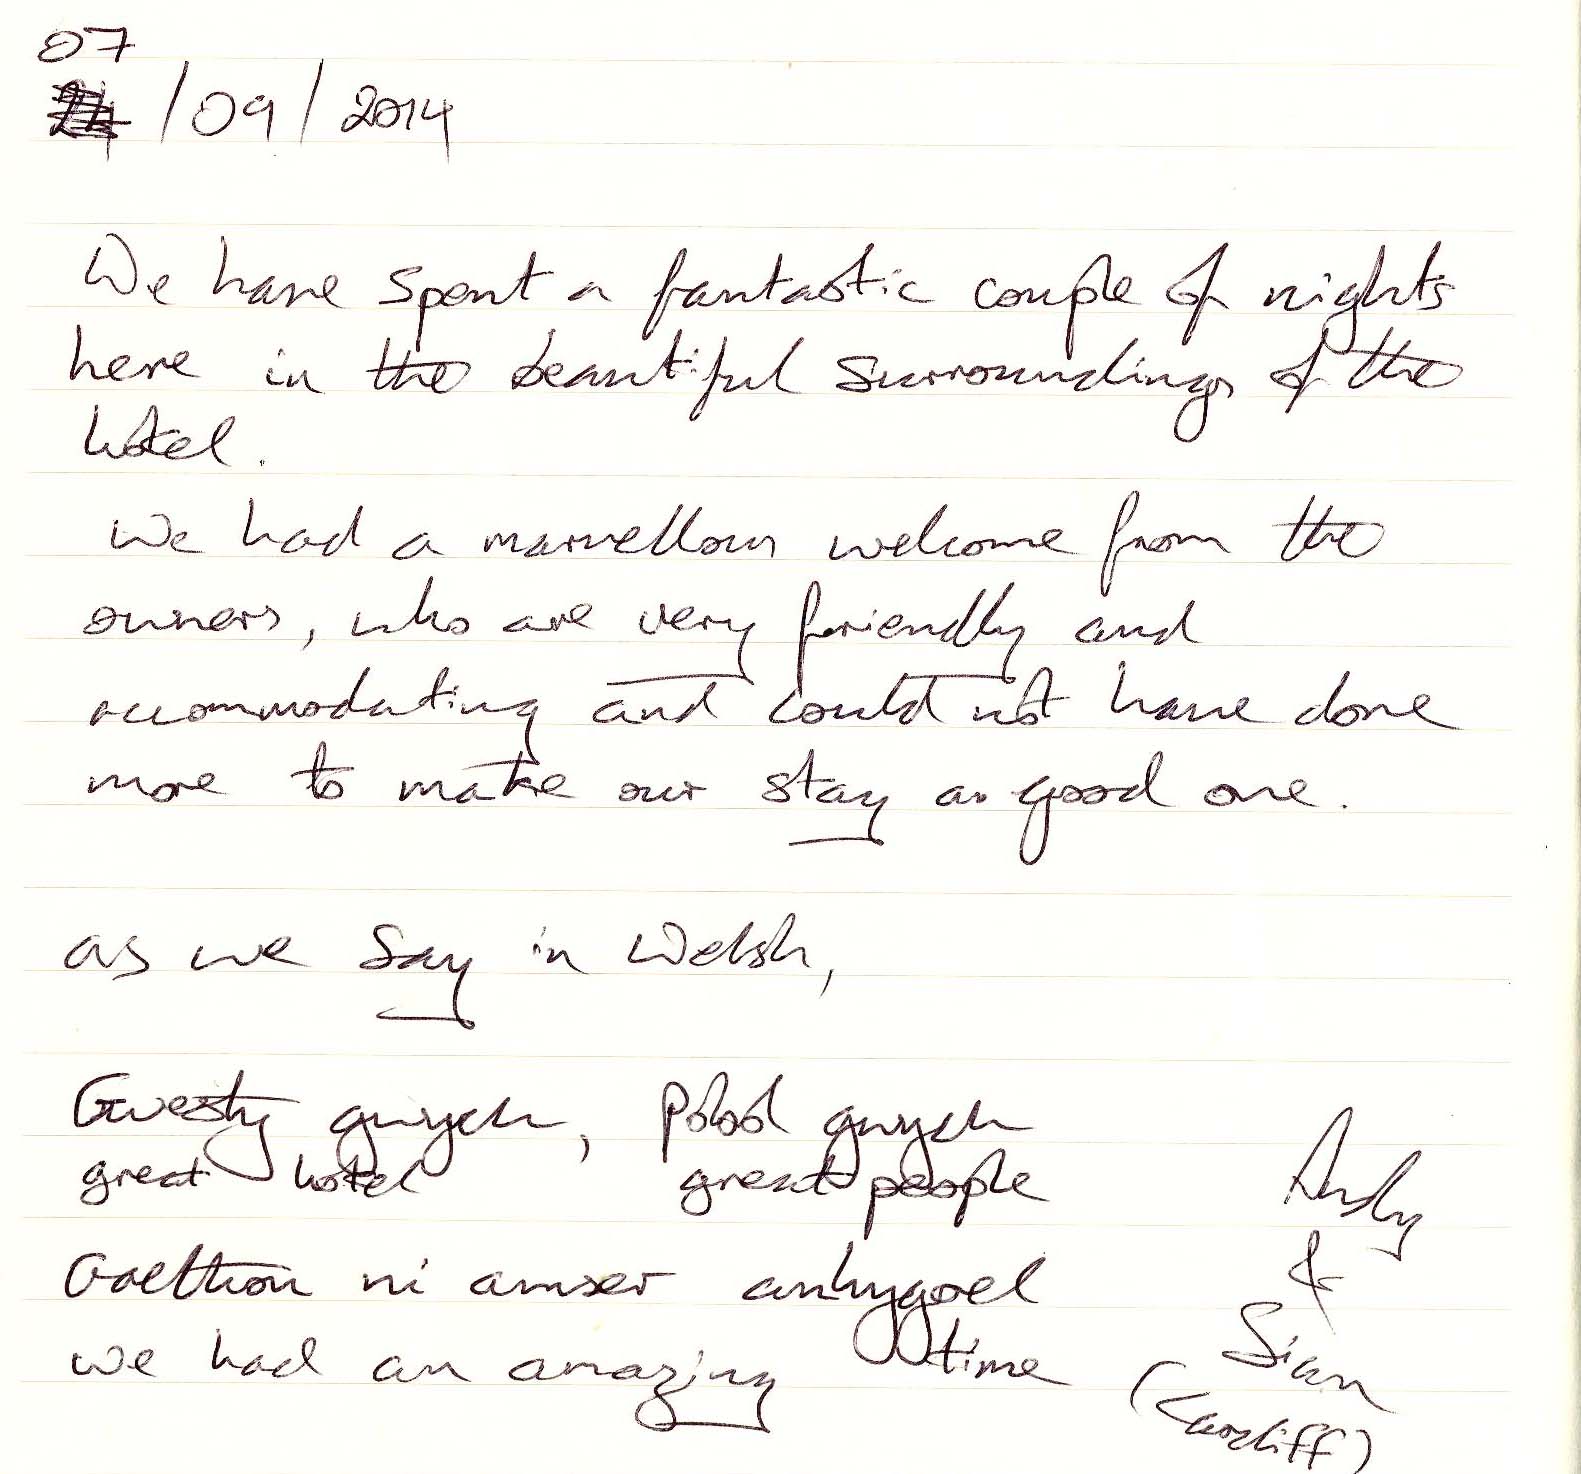 07
/09/2014
We have spent a fantastic couple of nights
here in the beautiful surroundings of the
hotel.
We had a marvellous welcome from the
owners, who are very friendly and
accommodating and could not have done
more to make our stay a good one.
as we say in Welsh,
Gwesty gwych, pobol gwych
great hotel great people
Gaethon ni amser anhygoel
we had an amazing time
Andy
&
Sian
(Cardiff)